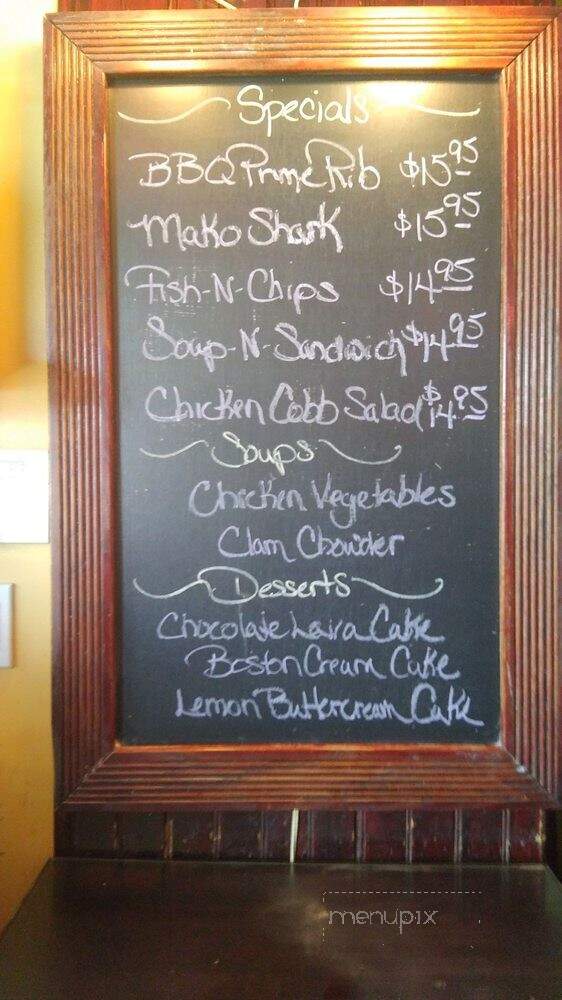 Specials
BBQ Prime Rib $15.95
Mako Shark $15.95
Fish-N-Chips $14.95
Soup-N-Sandwich $14.95
Chicken Cobb Salad $14.95
Soups
Chicken Vegetables
Clam Chowder
Desserts
Chocolate Lava Cake
Boston Cream Cake
Lemon Buttercream Cake
menupix